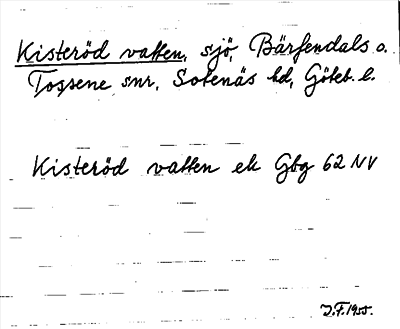 Kisteröd vatten, sjö, Bärfendals o.
Tossene snr, Sotenäs hd, Göteb. l.
Kisteröd vatten ek Gbg 62 NV
J.F. 1955.